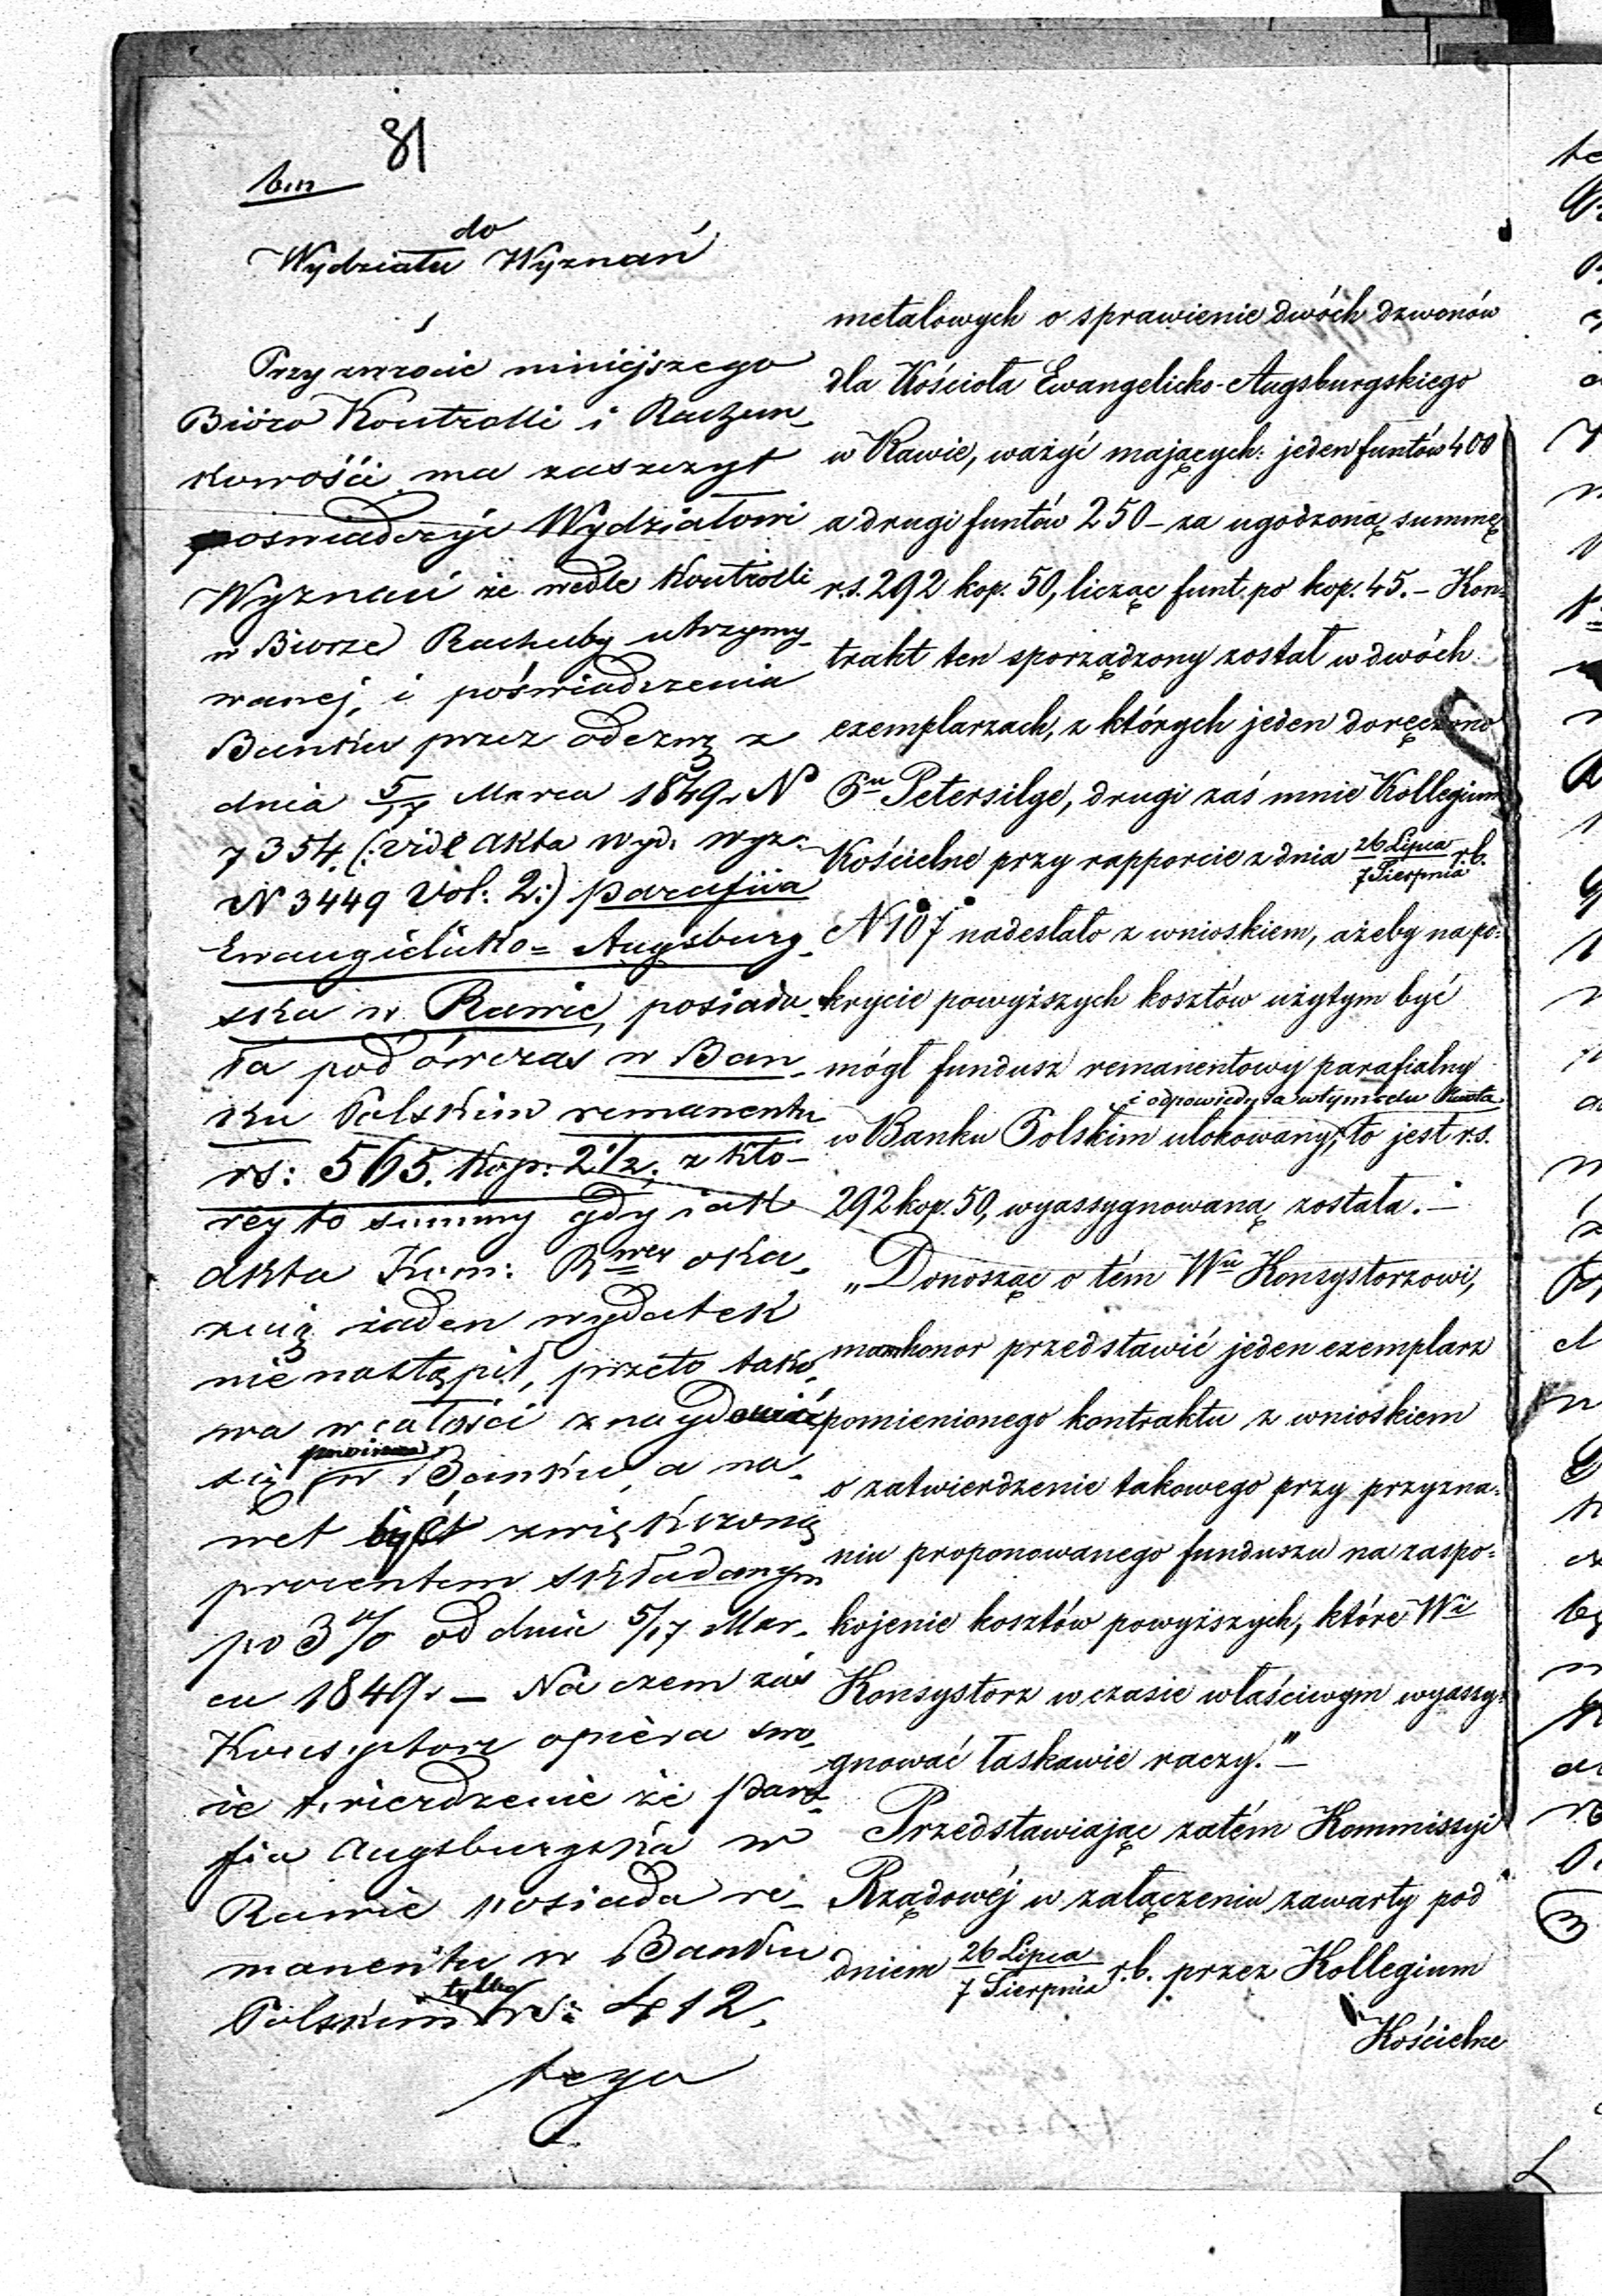 81
do
Wydziału Wyznań
Przy zwrocie niniejszego
Bióro Kontrolli i Rachun-
kowości ma zaszczyt
poświadczyć Wydziałowi
Wyznań że wedle Kontrolli
w Biorze Rachuby utrzymy-
wanej, i poświadczenia
Banku przez odezwę z
dnia 5/17 Marca 1849 r. N
7354. (: vide akta Wyd. Wyz:
N 3449 Vol: 2:) parafiia
Ewangielicko= Augsburg-
ska w Rawie, posiada-
ła pod ówczas w Ban-
ku Polskim remanentu
rs: 565. kop: 2 1/2. z któ-
rey to summy gdy iak
akta Kom: Rwey oka-
zuią żaden wydatek
nie nastąpił, przeto tako-
wa w całości znaydować
się powinna w Banku, a na-
wet być zwiększoną
procentem składanym
po 3 % od dnia 5/17 Mar-
ca 1849 r. – Na czem zaś
Konsystorz opiera swo-
ie twierdzenie że para-
fia Augsburgska w
Rawie posiada re-
manentu w Banku
Polskim tylko rs: 412.
metalowych o sprawienie dwóch dzwonów
dla Kościoła Ewangelicko-Augsburgskiego
w Rawie, ważyć mających: jeden funtów 400
a drugi funtów 250 – za ugodzoną summę
r.s. 292 kop. 50, licząc funt po kop. 45. – Kon-
trakt ten sporządzony został w dwóch
exemplarzach, z których jeden doręczono
Pu Petersilge, drugi zaś mnie Kollegium
Kościelne przy rapporcie z dnia 26 Lipca / 7 Sierpnia r.b.
N 107 nadesłało z wnioskiem, ażeby na po-
krycie powyższych kosztów użytym być
mógł fundusz remanentowy parafialny
w Banku Polskim ulokowany, i odpowiednia w tym celu to jest r.s.
292 kop. 50, wyassygnowaną została. –
„Donosząc o tém Wu Konsystorzowi,
mam honor przedstawić jeden exemplarz
pomienionego kontraktu z wnioskiem
o zatwierdzenie takowego przy przyzna-
niu proponowanego funduszu na zaspo-
kojenie kosztów powyższych, które Wi
Konsystorz w czasie właściwym wyassy-
gnować łaskawie raczy." –
Przedstawiając zatém Kommissyi
Rządowéj w załączeniu zawarty pod
dniem 26 Lipca / 7 Sierpnia r.b. przez Kollegium
Kościelne